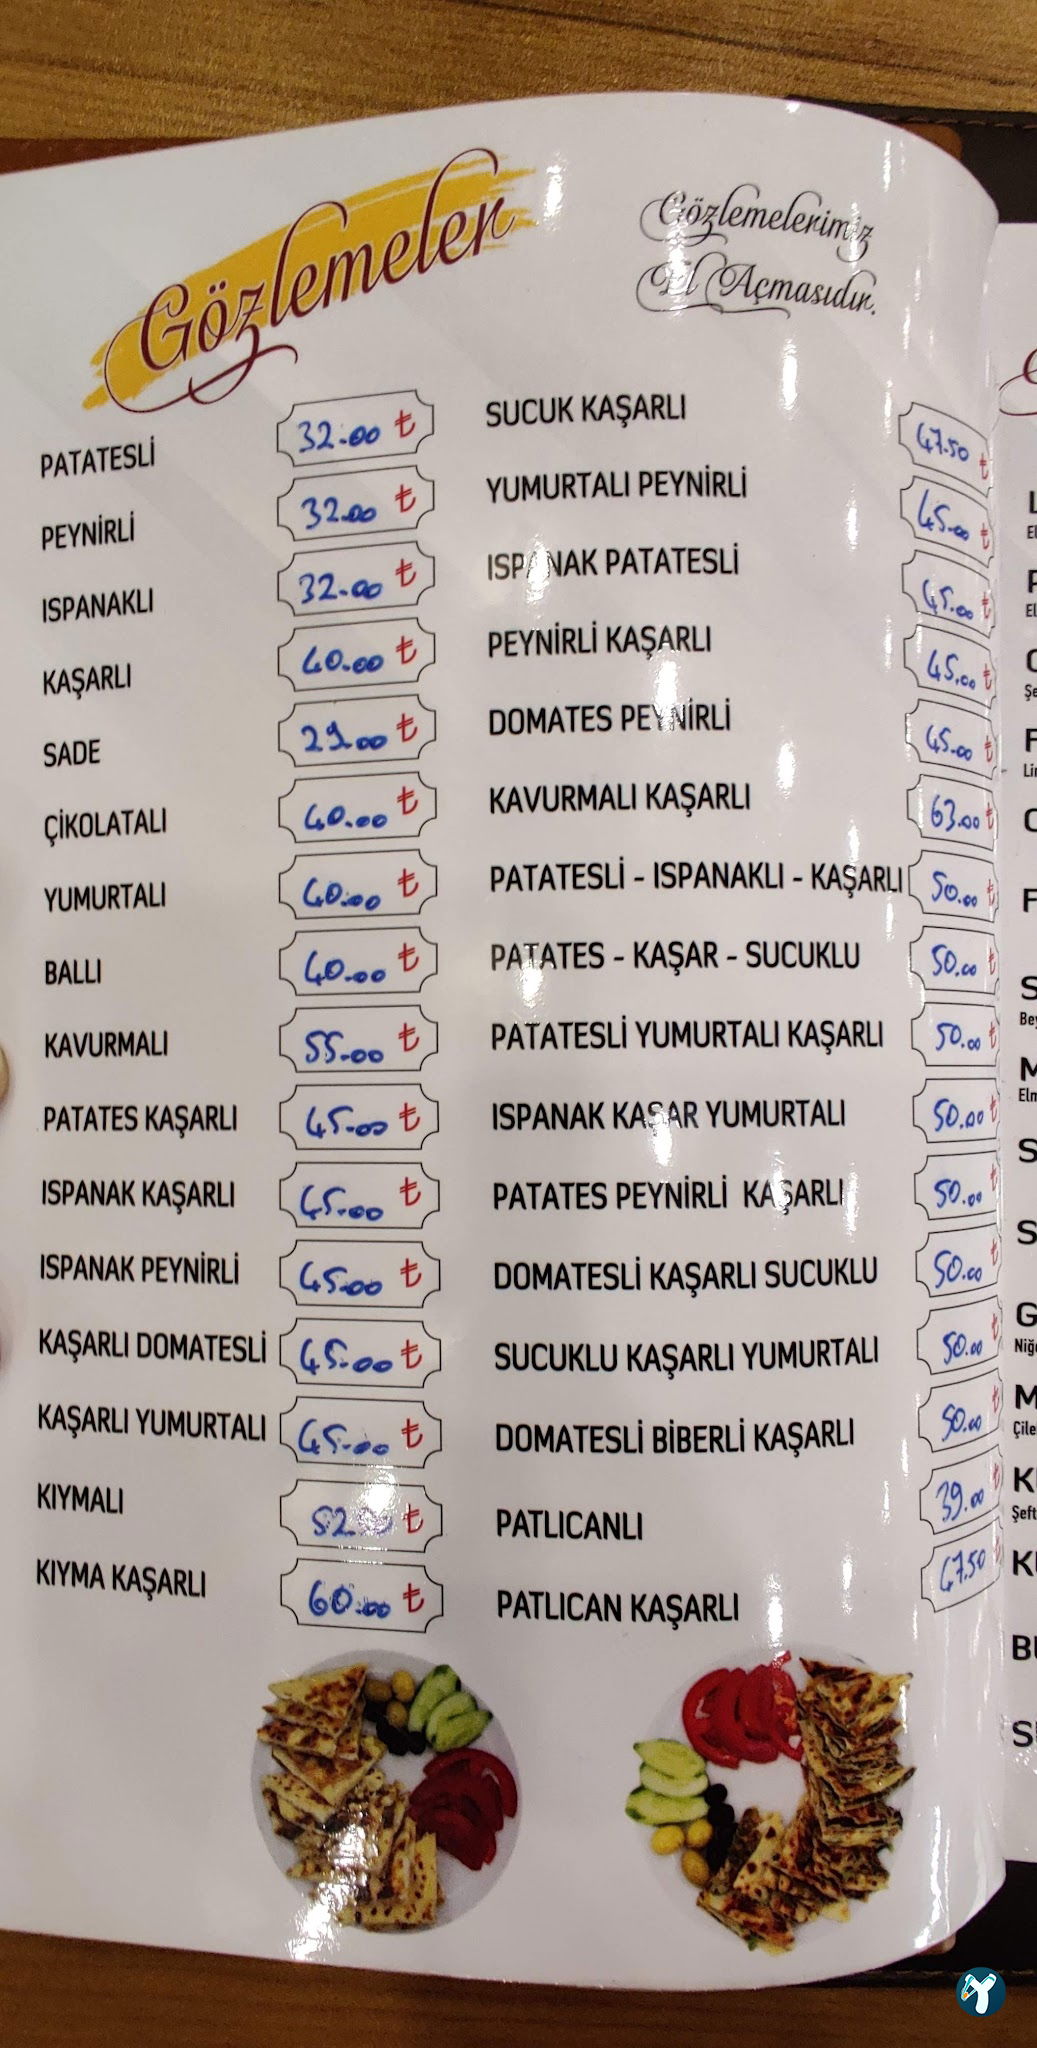 Gözlemeler
Gözlemelerimiz
El Açmasıdır.
PATATESLİ 32.00 ₺
PEYNİRLİ 32.00 ₺
ISPANAKLI 32.00 ₺
KAŞARLI 40.00 ₺
SADE 29.00 ₺
ÇİKOLATALI 40.00 ₺
YUMURTALI 40.00 ₺
BALLI 40.00 ₺
KAVURMALI 55.00 ₺
PATATES KAŞARLI 45.00 ₺
ISPANAK KAŞARLI 45.00 ₺
ISPANAK PEYNİRLİ 45.00 ₺
KAŞARLI DOMATESLİ 45.00 ₺
KAŞARLI YUMURTALI 45.00 ₺
KIYMALI ₺
KIYMA KAŞARLI 60.00 ₺
SUCUK KAŞARLI 47.50 ₺
YUMURTALI PEYNİRLİ 45.00 ₺
ISPANAK PATATESLİ 45.00 ₺
PEYNİRLİ KAŞARLI 45.00 ₺
DOMATES PEYNİRLİ 45.00 ₺
KAVURMALI KAŞARLI 63.00 ₺
PATATESLİ - ISPANAKLI - KAŞARLI 50.00 ₺
PATATES - KAŞAR - SUCUKLU 50.00 ₺
PATATESLİ YUMURTALI KAŞARLI 50.00 ₺
ISPANAK KAŞAR YUMURTALI 50.00 ₺
PATATES PEYNİRLİ KAŞARLI 50.00 ₺
DOMATESLİ KAŞARLI SUCUKLU 50.00 ₺
SUCUKLU KAŞARLI YUMURTALI 50.00 ₺
DOMATESLİ BİBERLİ KAŞARLI 50.00 ₺
PATLICANLI 39.00 ₺
PATLICAN KAŞARLI 47.50 ₺